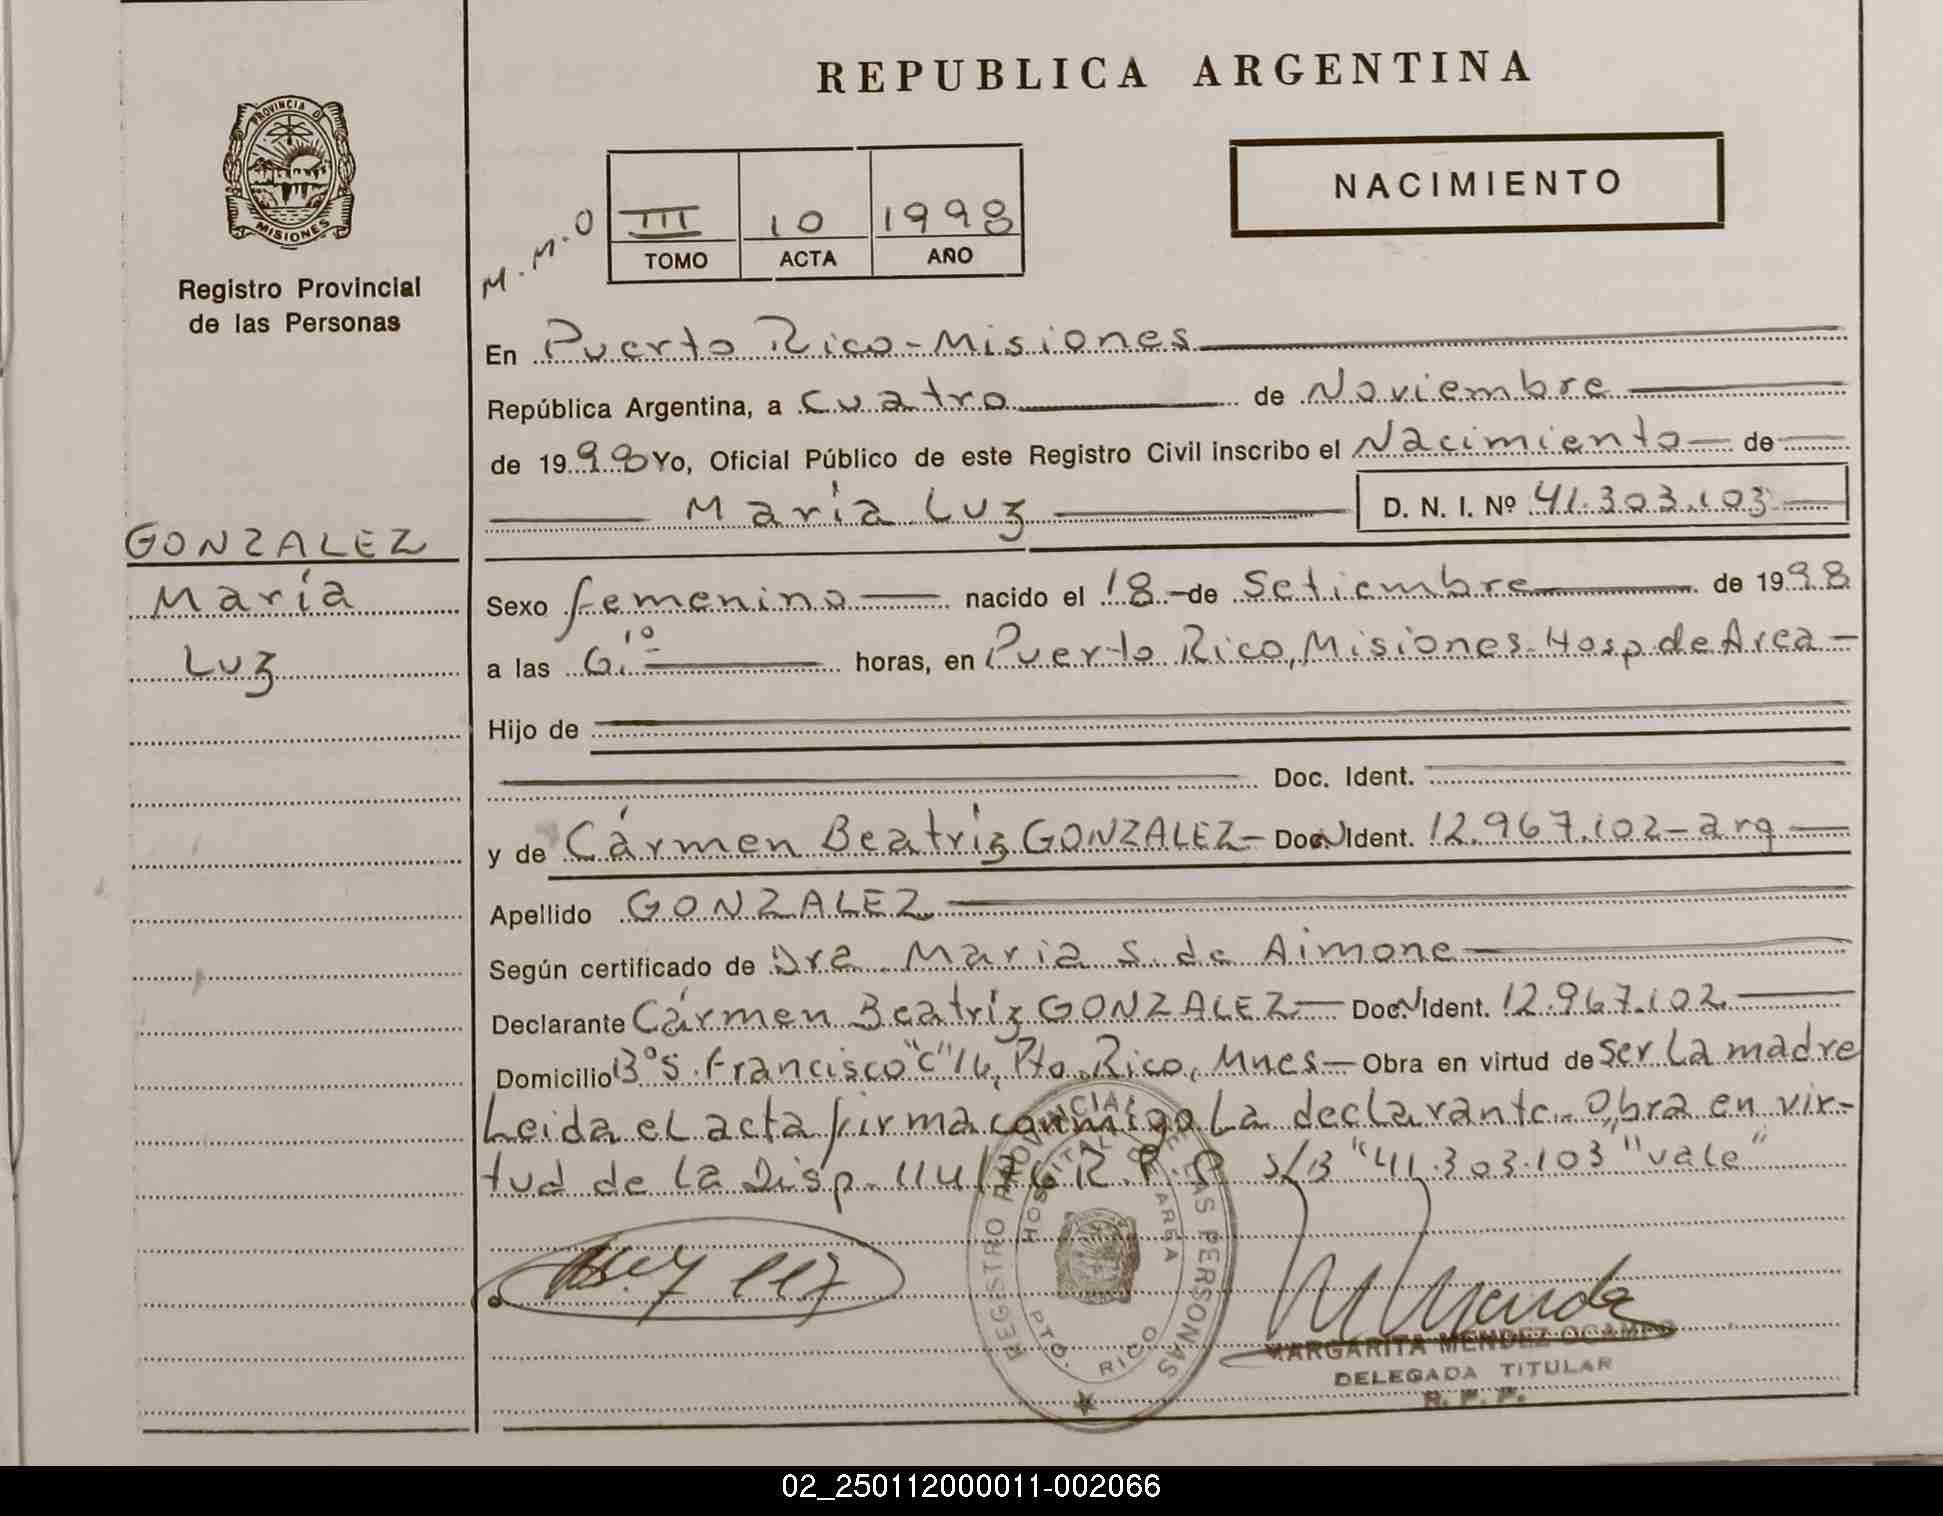 REPUBLICA ARGENTINA
PROVINCIA DE
MISIONES
Registro Provincial
de las Personas
NACIMIENTO
M.M.O
III 10 1998
TOMO ACTA AÑO
En Puerto Rico-Misiones
República Argentina, a cuatro de Noviembre
de 1998 Yo, Oficial Público de este Registro Civil inscribo el Nacimiento de
María Luz D. N. I. Nº 41.303.103
GONZALEZ
María
Luz
Sexo femenino nacido el 18 de Setiembre de 1998
a las 6.10 horas, en Puerto Rico, Misiones. Hosp. de Area
Hijo de
Doc. Ident.
y de Cármen Beatríz GONZALEZ- Doc. Ident. 12.967.102-arg
Apellido GONZALEZ
Según certificado de Dra. Maria S. de Aimone
Declarante Cármen Beatríz GONZALEZ- Doc. Ident. 12.967.102
Domicilio Bº S. Francisco "C" 16, Pto. Rico, Mnes- Obra en virtud de ser la madre
Leida el acta firma conmigo la declarante. Obra en vir-
tud de la Disp. 114/76 R.P.P s/B "41.303.103" "vale"
REGISTRO PROVINCIAL DE LAS PERSONAS
HOSPITAL DE
PTO. RICO
MARGARITA MENDEZ OCAMPO
DELEGADA TITULAR
R. P. P.
02_250112000011-002066